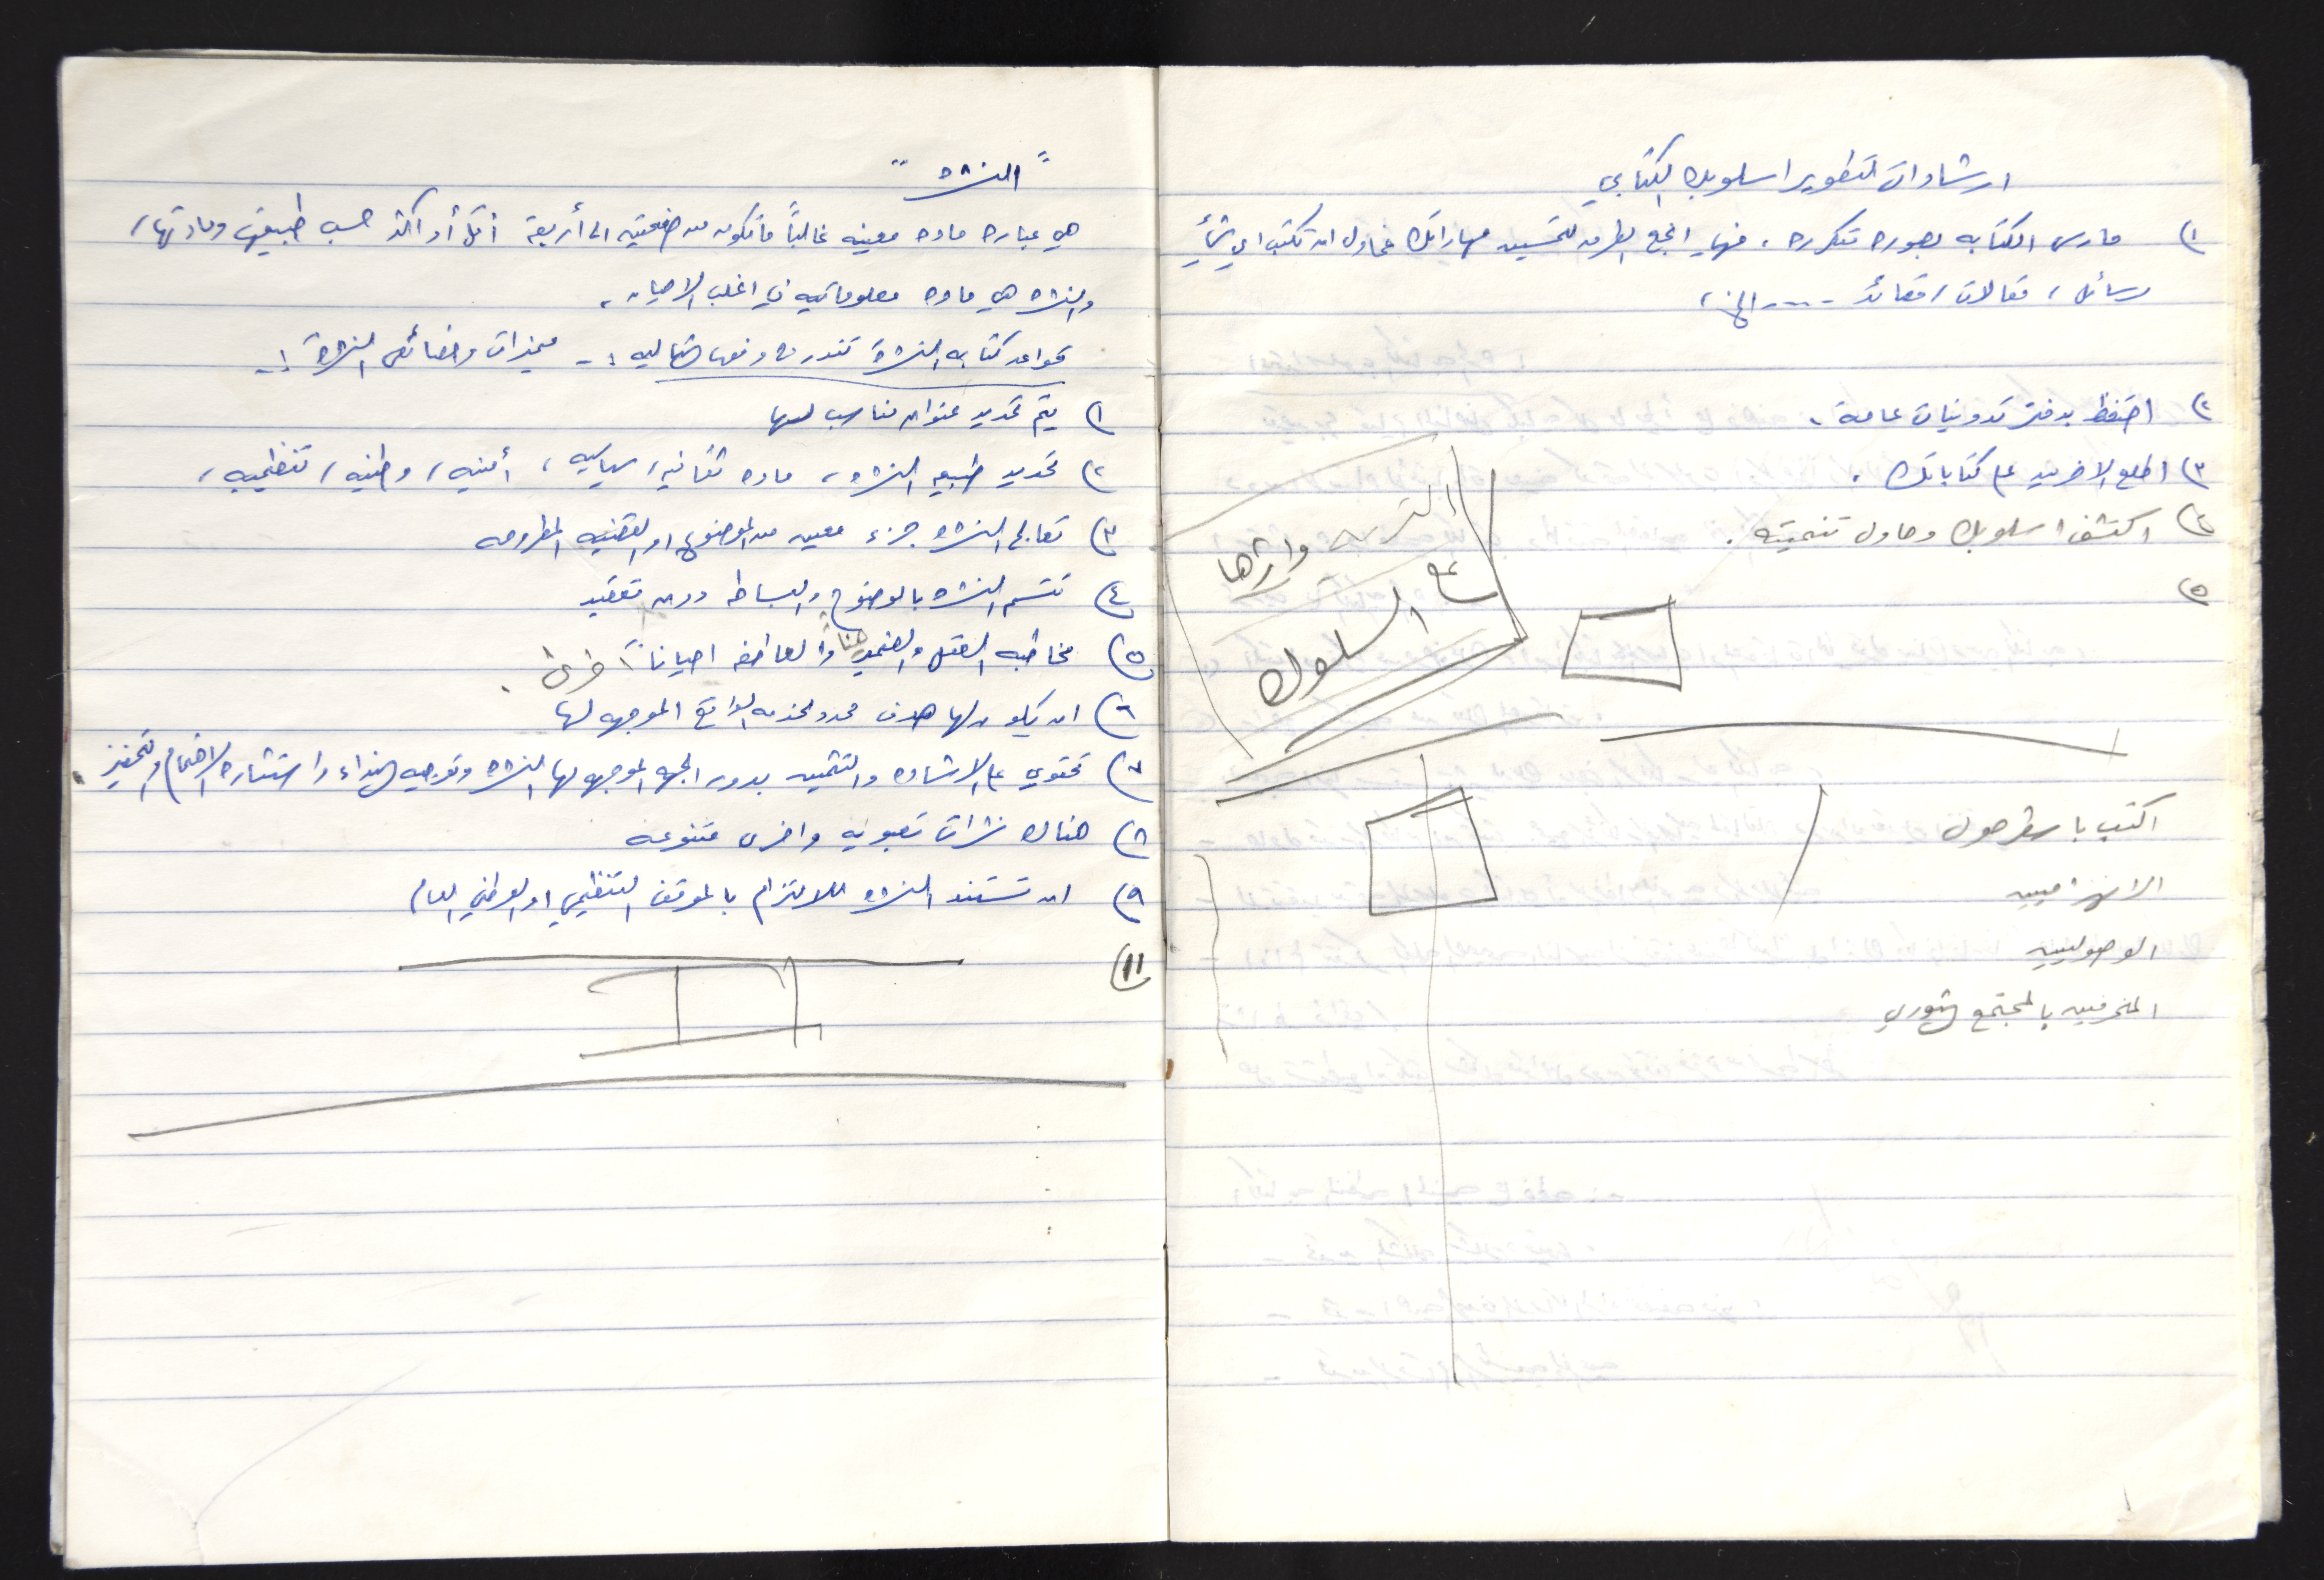 ارشادات لتطوير اسلوبك الكتابي
١) مارس الكتابه بصوره متكرره ، فهي انجع الطرق لتحسين مهاراتك فحاول ان تكتب اي شيء
رسائل ، مقالات ، قصائد ---- الخ ،
٢) احتفظ بدفتر تدوينات عامة .
٣) اطلع الاخرين على كتاباتك .
٤) اكتشف اسلوبك وحاول تنميته .
٥)
التربيه واثرها
على
السلوك
اكتب باسطر حول
الانهزاميين
الوصوليين
المنحرفين بالمجتمع الثوري
" النشره "
هي عباره ماده معينه غالباً ما تكون من صفحتين الى أربعة اقل أو اكثر حسب طبيعتها ومادتها ،
والنشره هي ماده معلوماتيه في اغلب الاحيان ،
قواعد كتابه النشرة تندرج وفقها التاليه :- مميزات وخصائص النشرة :-
١) يتم تحديد عنوان مناسب لها
٢) تحديد طبيعه النشره ، ماده ثقافيه ، سياسيه ، أمنيه ، وطنيه ، تنظيميه ،
٣) تعالج النشره جزء معين من الموضوع او القضيه المطروحه
٤) تتسم النشره بالوضوح والبساطه دون تعقيد
٥) مخاطبه العقل والضمير هنا والعاطفه احياناً اخرى .
٦) ان يكون لها هدف محدد لخدمه الواقع الموجهه لها
٧) تحتوي على الارشاده والتثمين بدور الجهه الموجهه لها النشره وتوجيه النداء واستثاره الاهتمام والتحفيز .
٨) هناك نشرات تعبويه واخرى متنوعه
٩) ان تستند النشره للالتزام بالموقف التنظيمي او الوطني العام
١١)